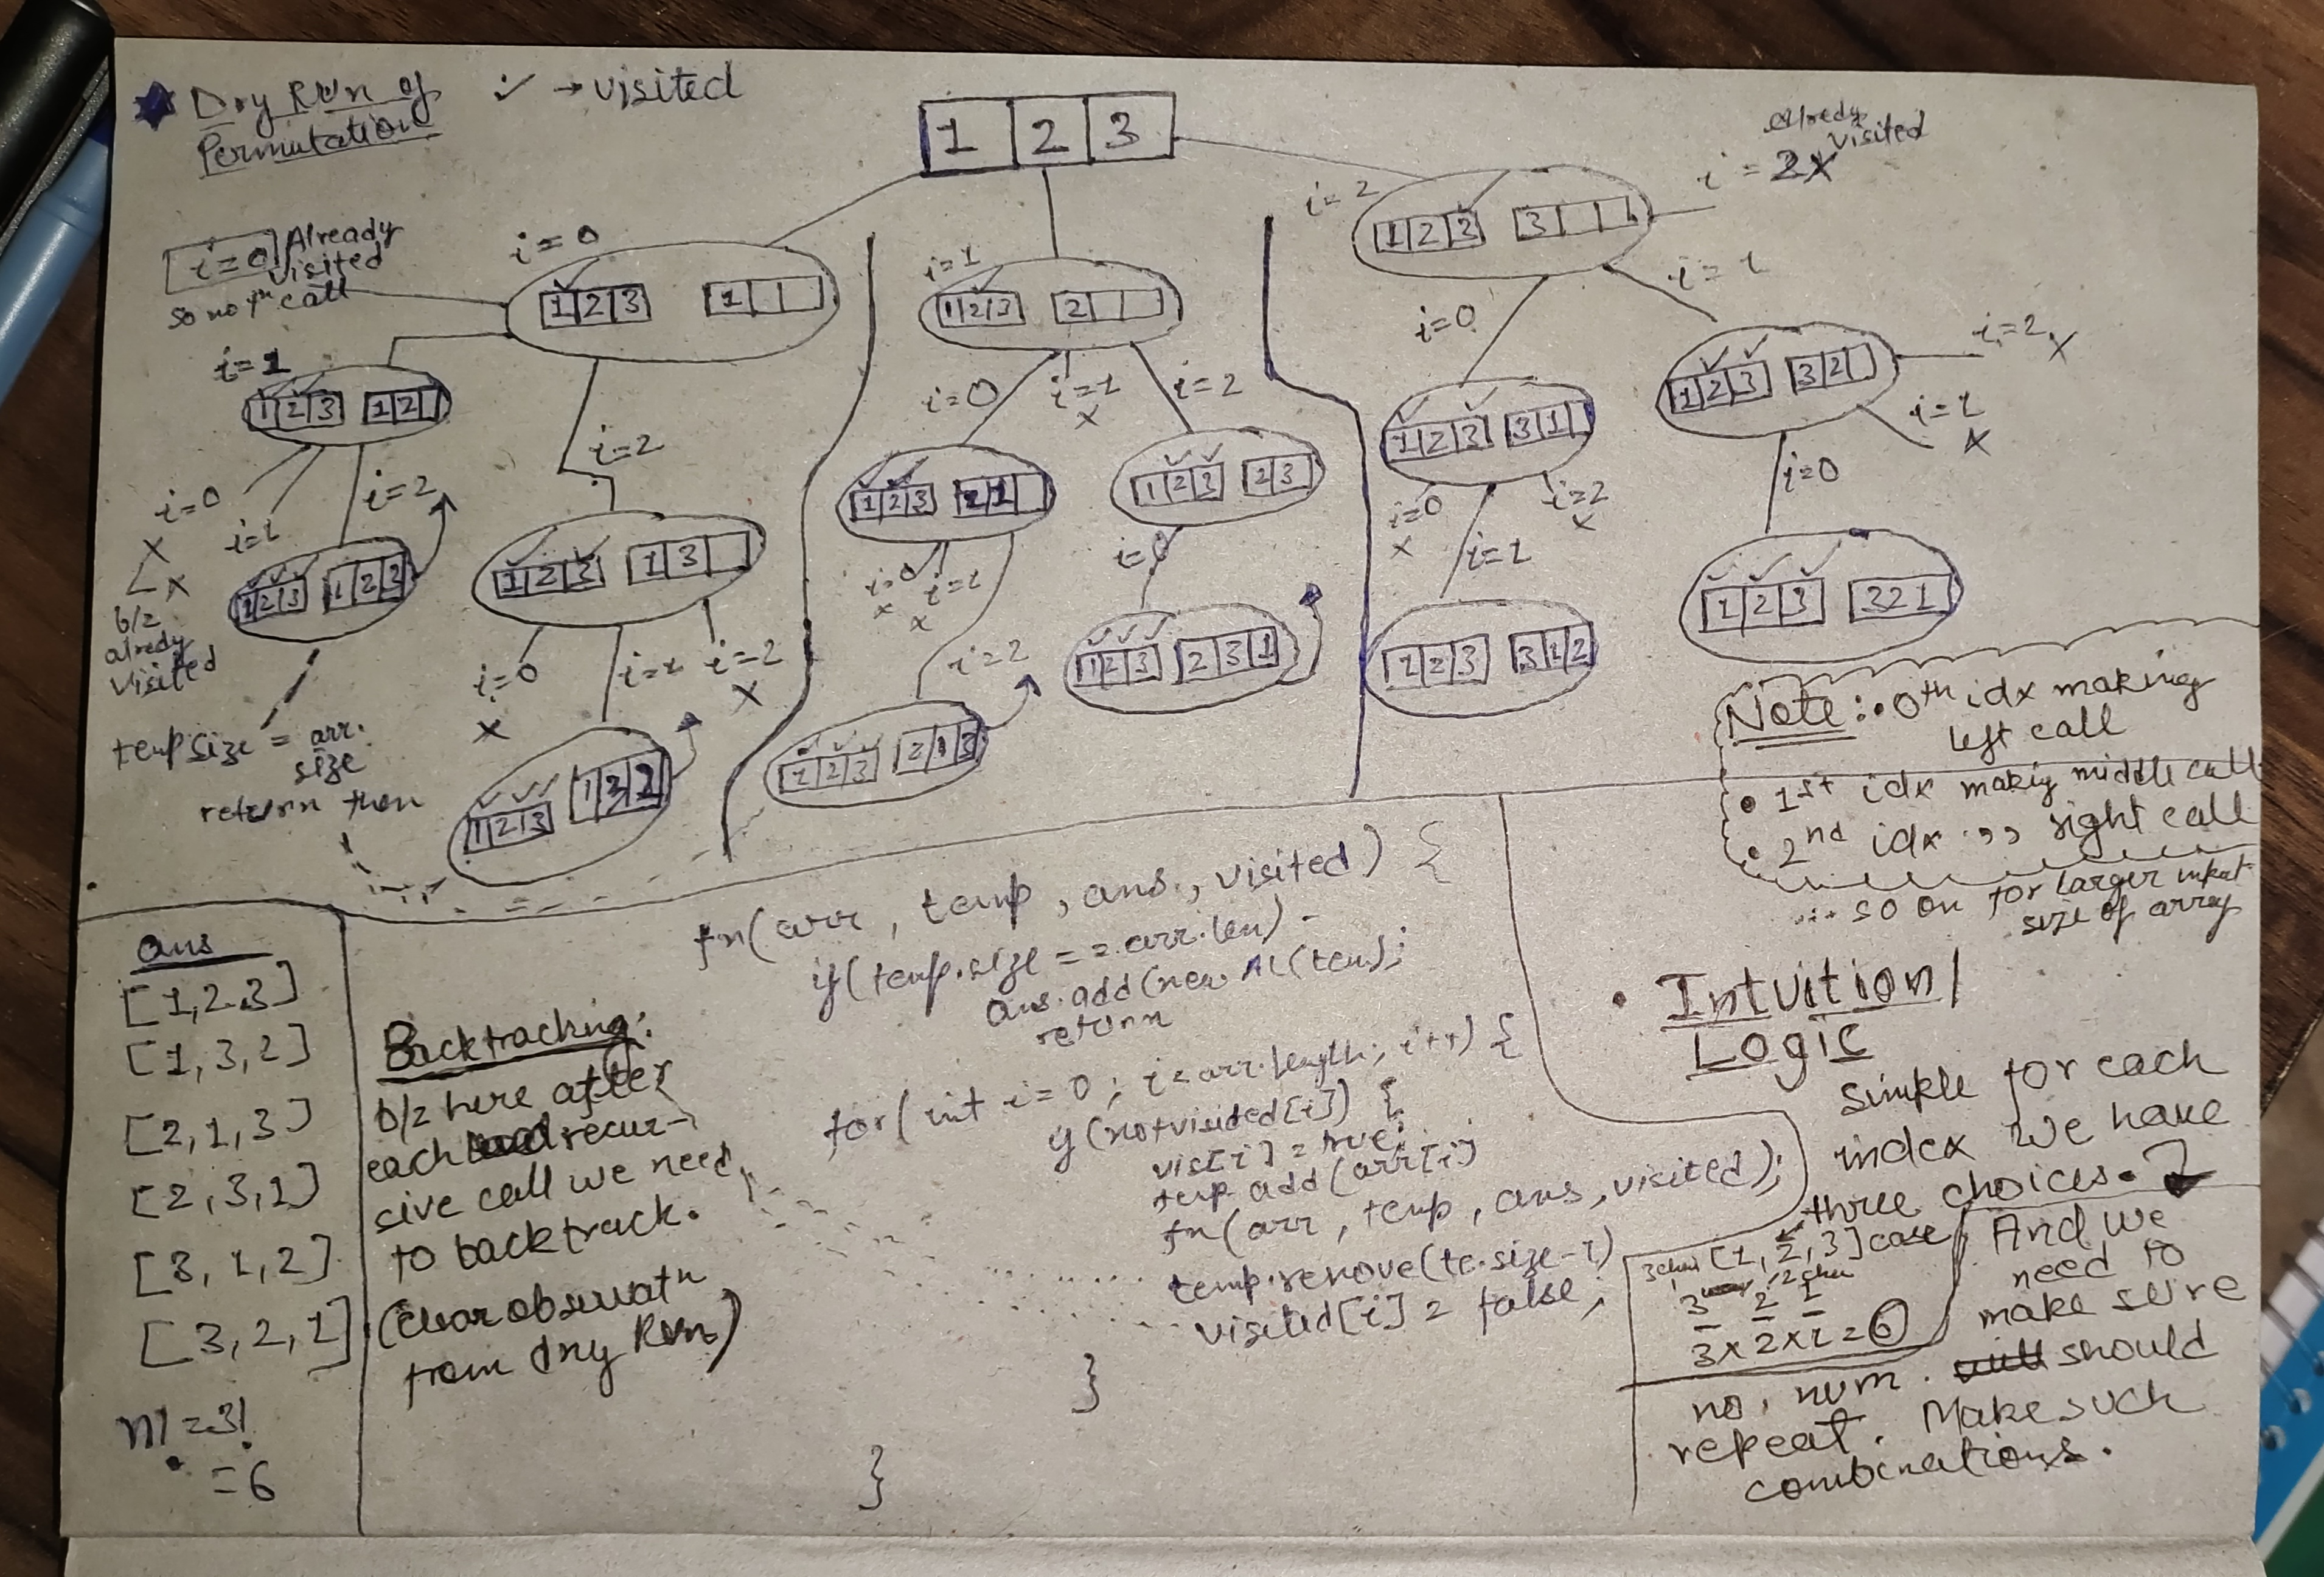 Dry Run of
Permutation
✓ → visited
1 2 3
i=0 Already
visited
so no fn call
i=0
1 2 3 1
i=1
1 2 3 1 2
i=0
X
i=1
X
b/z
alredy
visited
i=2
1 2 3 1 2 3
temp size = arr.
size
return then
i=2
1 2 3 1 3
i=0
X
i=1
i=2
X
1 2 3 1 3 2
i=1
1 2 3 2
i=0
i=1
X
i=2
1 2 3 2 1
i=0
X
i=1
X
i=2
1 2 3 2 1 3
1 2 3 2 3
i=0
1 2 3 2 3 1
i=2
1 2 3 3
alredy
visited
i=2X
i=0
i=1
1 2 3 3 1
i=0
X
i=1
i=2
X
1 2 3 3 1 2
1 2 3 3 2
i=2
X
i=1
X
i=0
1 2 3 3 2 1
Note: • 0th idx making
left call
• 1st idx makig middle call
• 2nd idx ,, right call
... so on for larger input
size of array
ans
[1,2,3]
[1,3,2]
[2,1,3]
[2,3,1]
[3,1,2]
[3,2,1]
n! = 3!
= 6
Backtracking:
b/z here after
each recur-
sive call we need
to backtrack.
(clear observatn
from dry Run)
fn(arr, temp, ans, visited) {
if(temp.size == arr.len)
ans.add(new AL(tem);
return
for(int i=0; i<arr.length; i++) {
if(notvisited[i]) {
vis[i] = true;
temp.add(arr[i]
fn(arr, temp, ans, visited);
temp.remove(te.size-1)
visited[i] = false;
}
}
• Intuition/
Logic
simple for each
index we have
three choices.
[1,2,3] case
3 2 1
3x2x1=6
And we
need to
make sure
no. num. should
repeat. Make such
combinations.